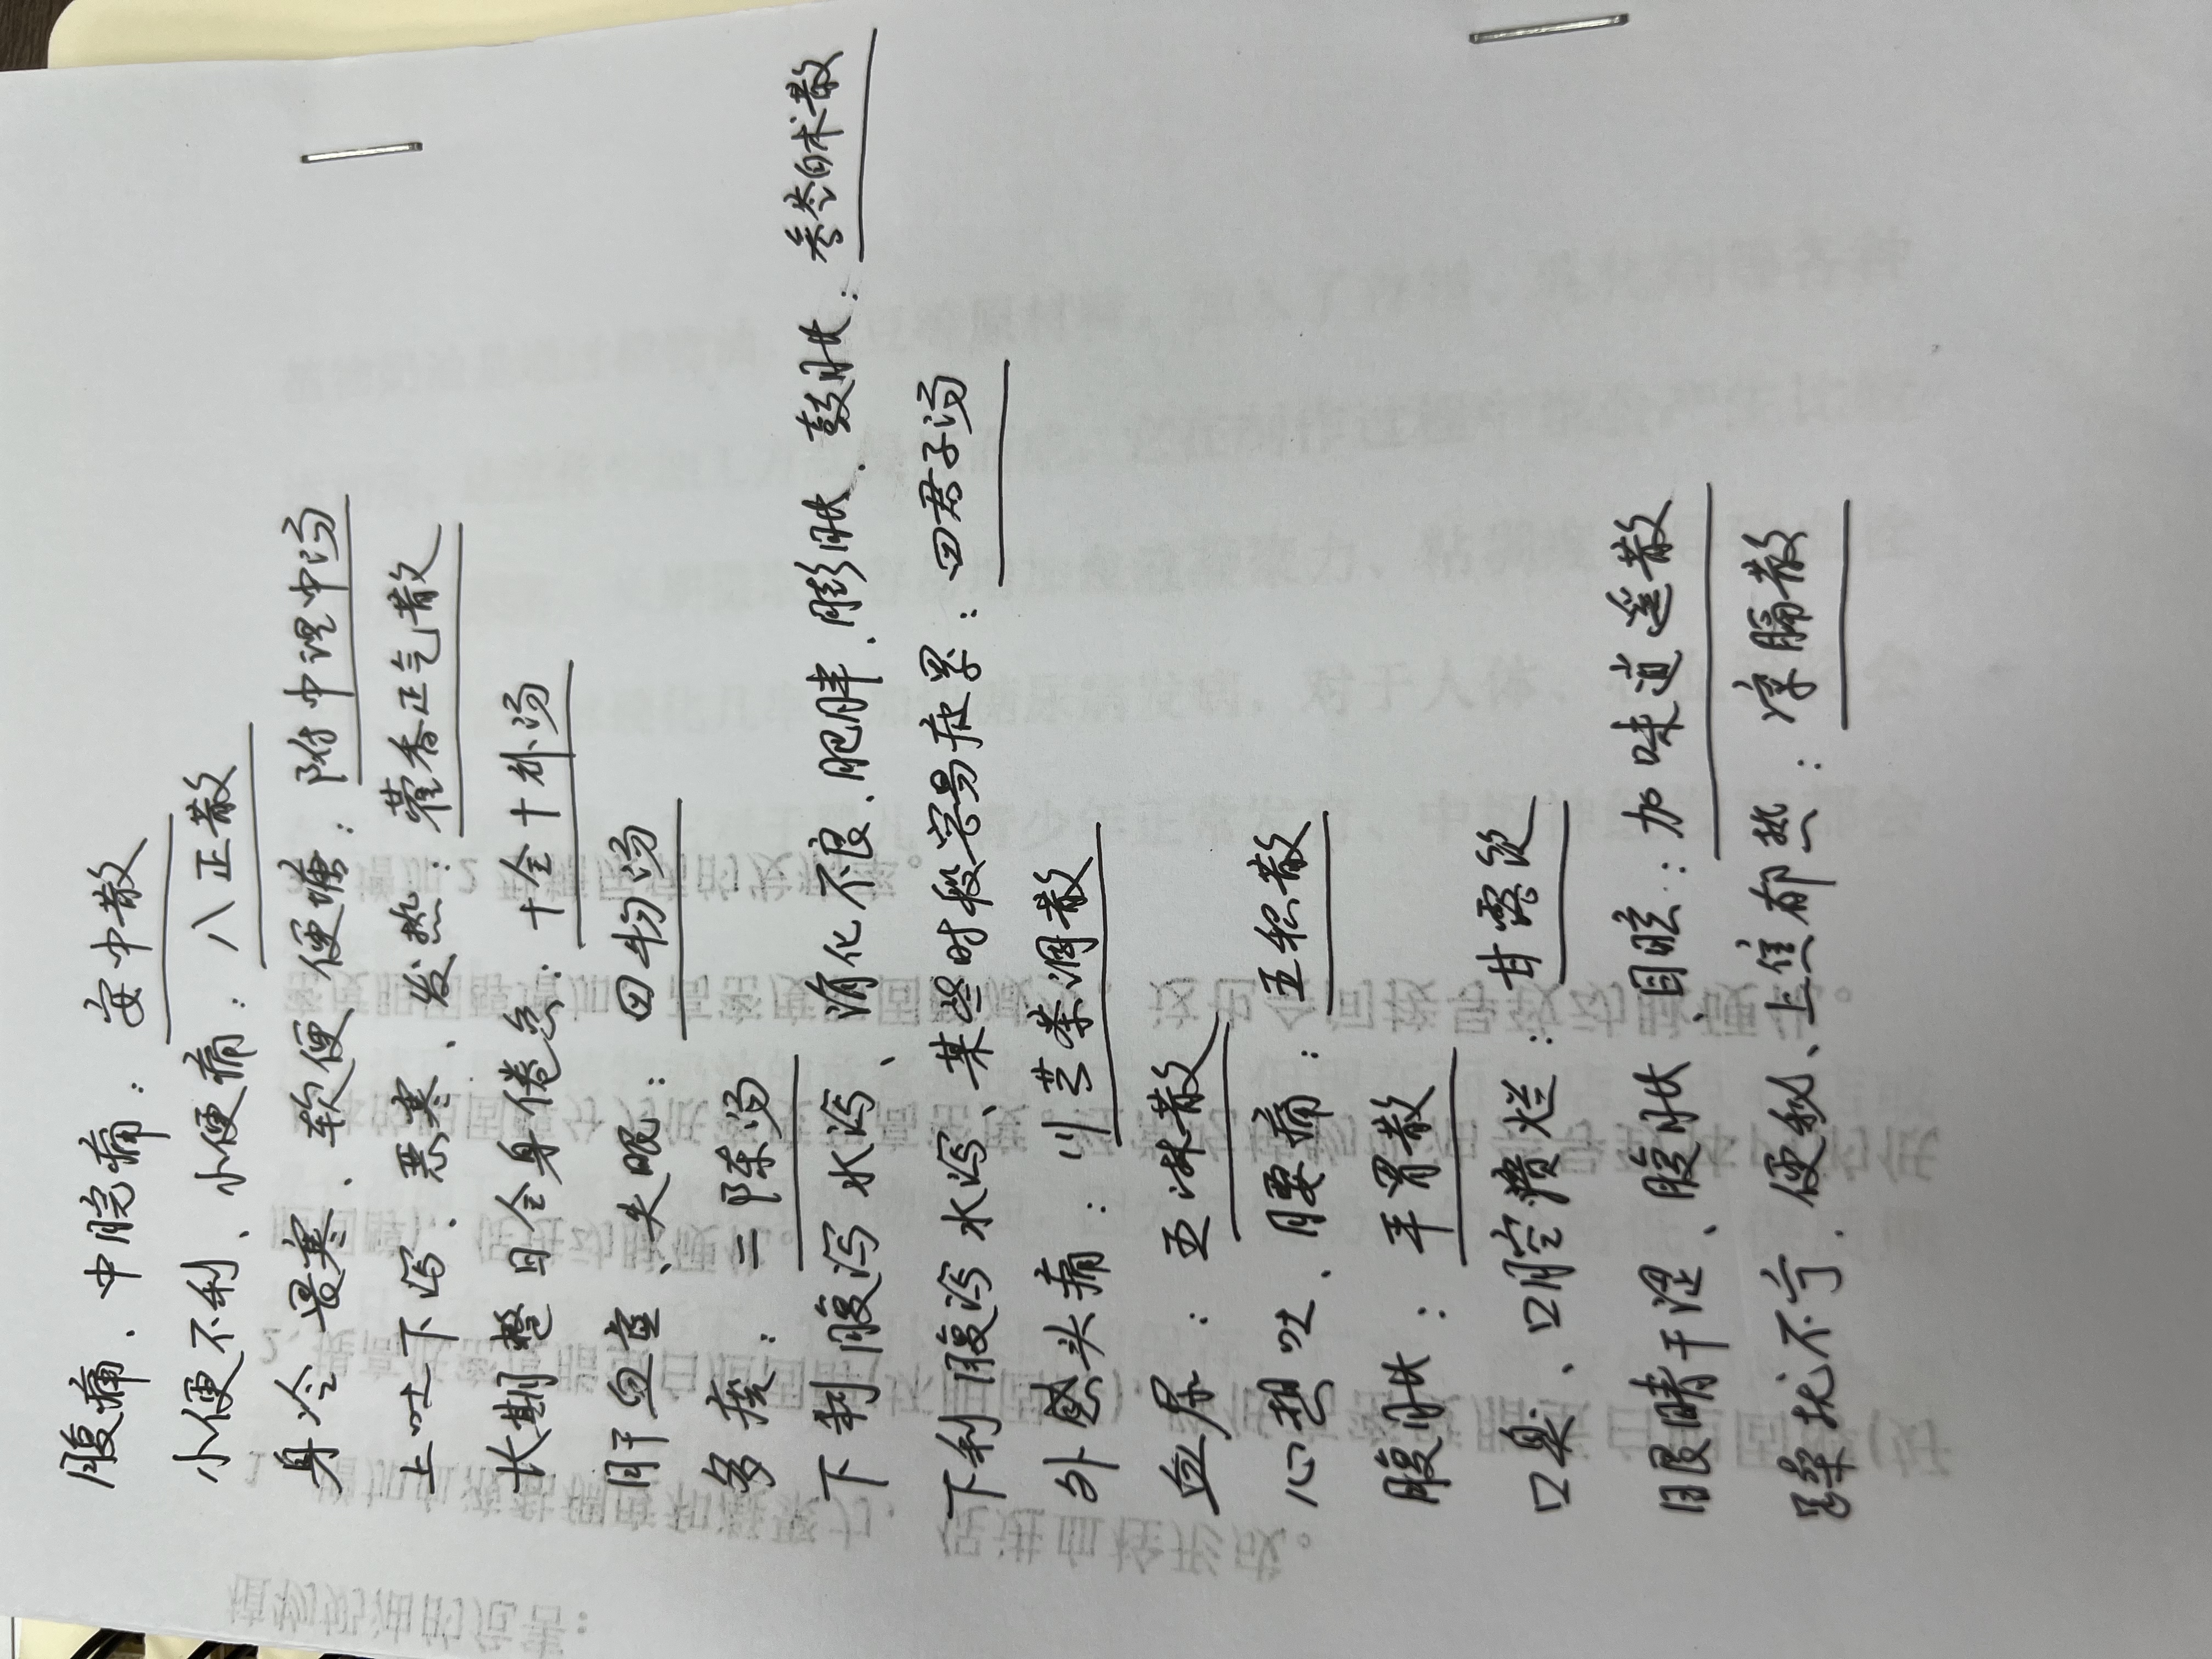 腹痛、中脘痛：安中散
小便不利、小便痛：八正散
身冷 畏寒、软便 便溏：附中理中汤
上吐下泻、恶寒、发热：藿香正气散
长期整日全身倦怠：十全十补汤
肝血虚、失眠：四物汤
多痰：二陈汤
下利 腹泻 水泻、消化不良、肥胖、膨胀、鼓胀：参苓白术散
下利 腹泻 水泻、某些时段容易疲累：四君子汤
外感头痛：川芎茶调散
血尿：五淋散
心想吐、腰痛：五积散
腹胀：平胃散
口臭、口腔溃烂：甘露饮
眼睛干涩、腹胀、目眩：加味逍遥散
躁扰不宁、便秘、上焦郁热：凉膈散